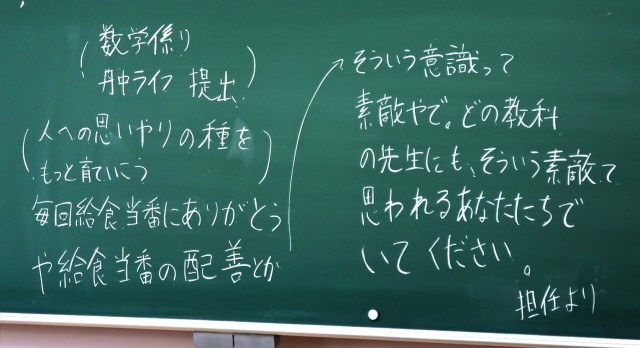 数学係り
丹中ライフ 提出
人への思いやりの種を
もっと育ていこう
毎回給食当番にありがとう
や給食当番の配善とか
そういう意識って
素敵やで。どの教科
の先生にも、そういう素敵て
思われるあなたたちで
いてください。
担任より